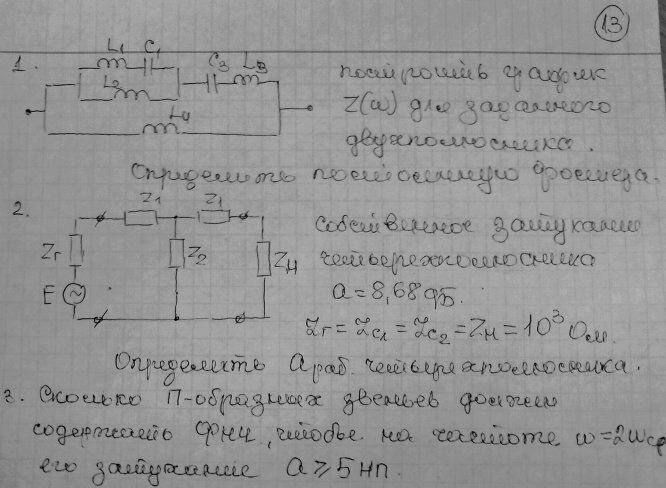 13
1.
L1 C1
L2
C3 L3
L4
построить график
Z(ω) для заданного
двухполюсника.
Определить постоянную Фостера.
2.
Z1 Z1
Zг Z2 Zн
E
собственное затухание
четырехполюсника
a = 8,68 дБ.
Zг = Zc1 = Zc2 = Zн = 10³ Ом
Определить a раб. четырехполюсника.
3. Сколько П-образных звеньев должен
содержать ФНЧ, чтобы на частоте ω=2ωср
его затухание a ⩾ 5 нп.